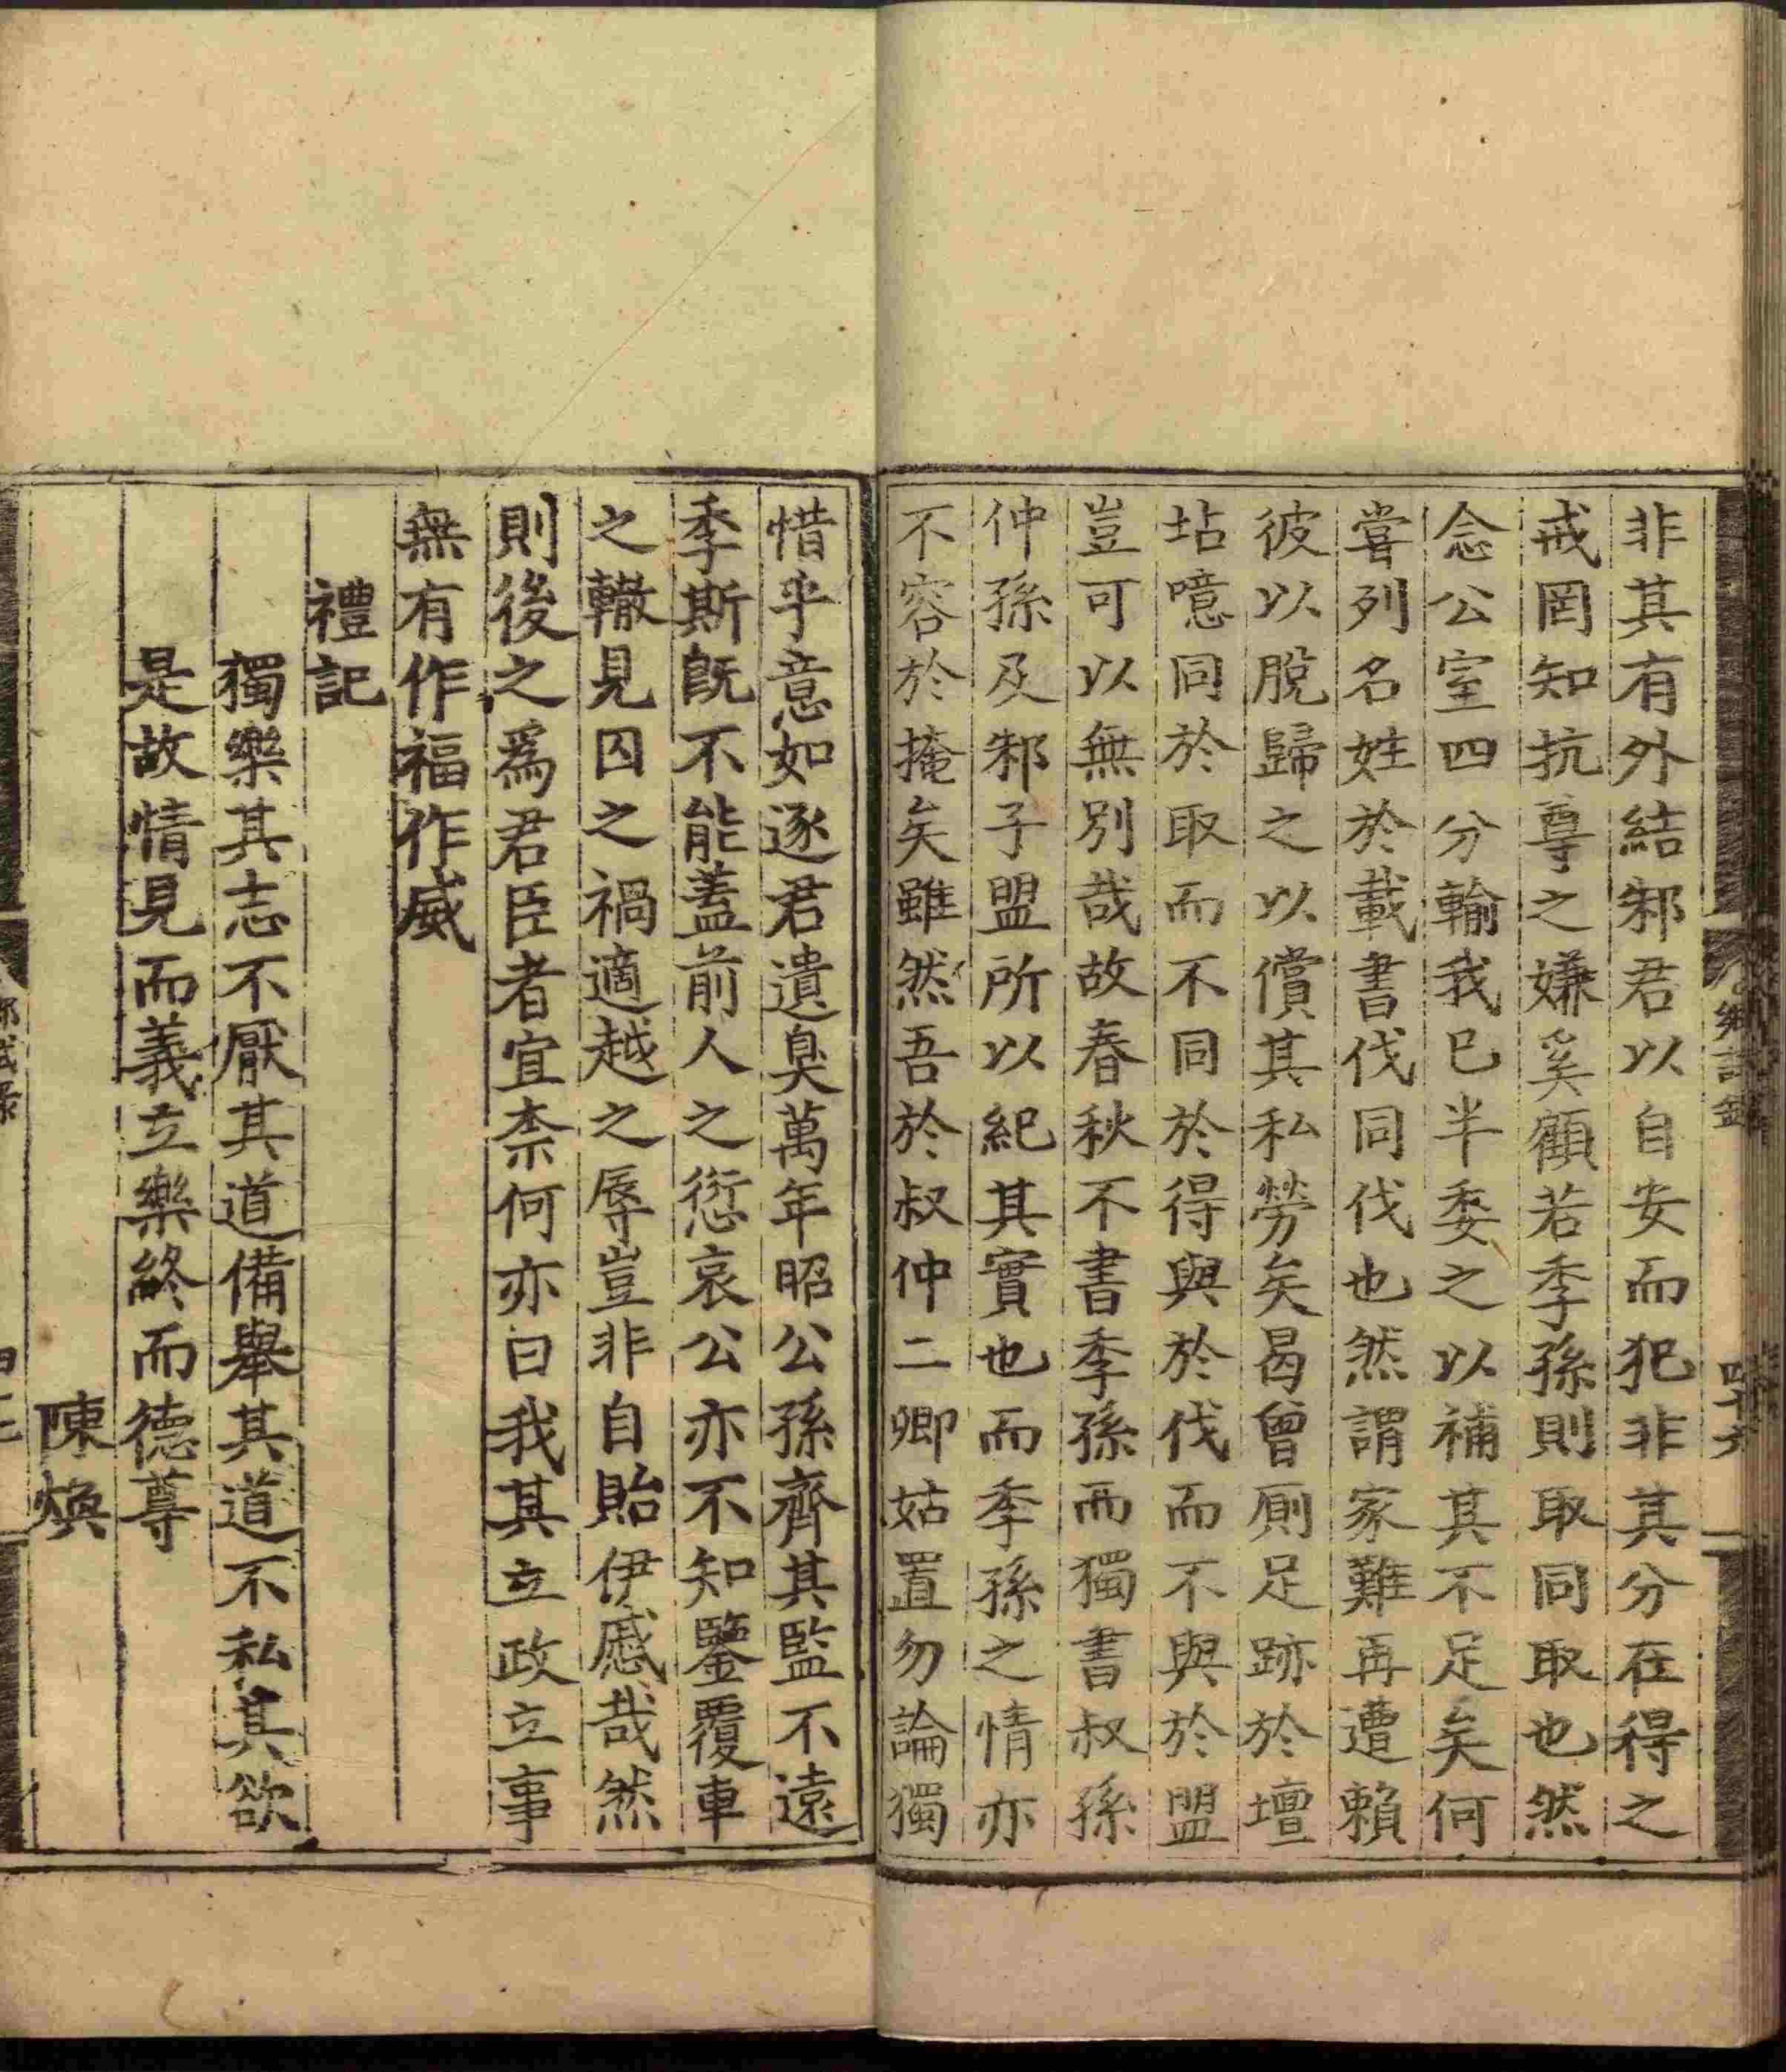 非其有外結邾君以自安而犯非其分在得之
戒罔知抗尊之嫌奚顧若季孫則取同取也然
念公室四分輸我已半委之以補其不足矣何
嘗列名姓於載書伐同伐也然謂家難再遭賴
彼以脫歸之以償其私勞矣曷曾厠足跡於壇
坫噫同於取而不同於得與於伐而不與於盟
豈可以無別哉故春秋不書季孫而獨書叔孫
仲孫及邾子盟所以紀其實也而季孫之情亦
不容於掩矣雖然吾於叔仲二卿姑置勿論獨
惜乎意如逐君遺臭萬年昭公孫齊其監不遠
季斯旣不能蓋前人之愆哀公亦不知鑒覆車
之轍見囚之禍適越之辱豈非自貽伊慼哉然
則後之爲君臣者宜柰何亦曰我其立政立事
無有作福作威
禮記
獨樂其志不厭其道備舉其道不私其欲
是故情見而義立樂終而德尊
陳煥
鄉試錄
四十六